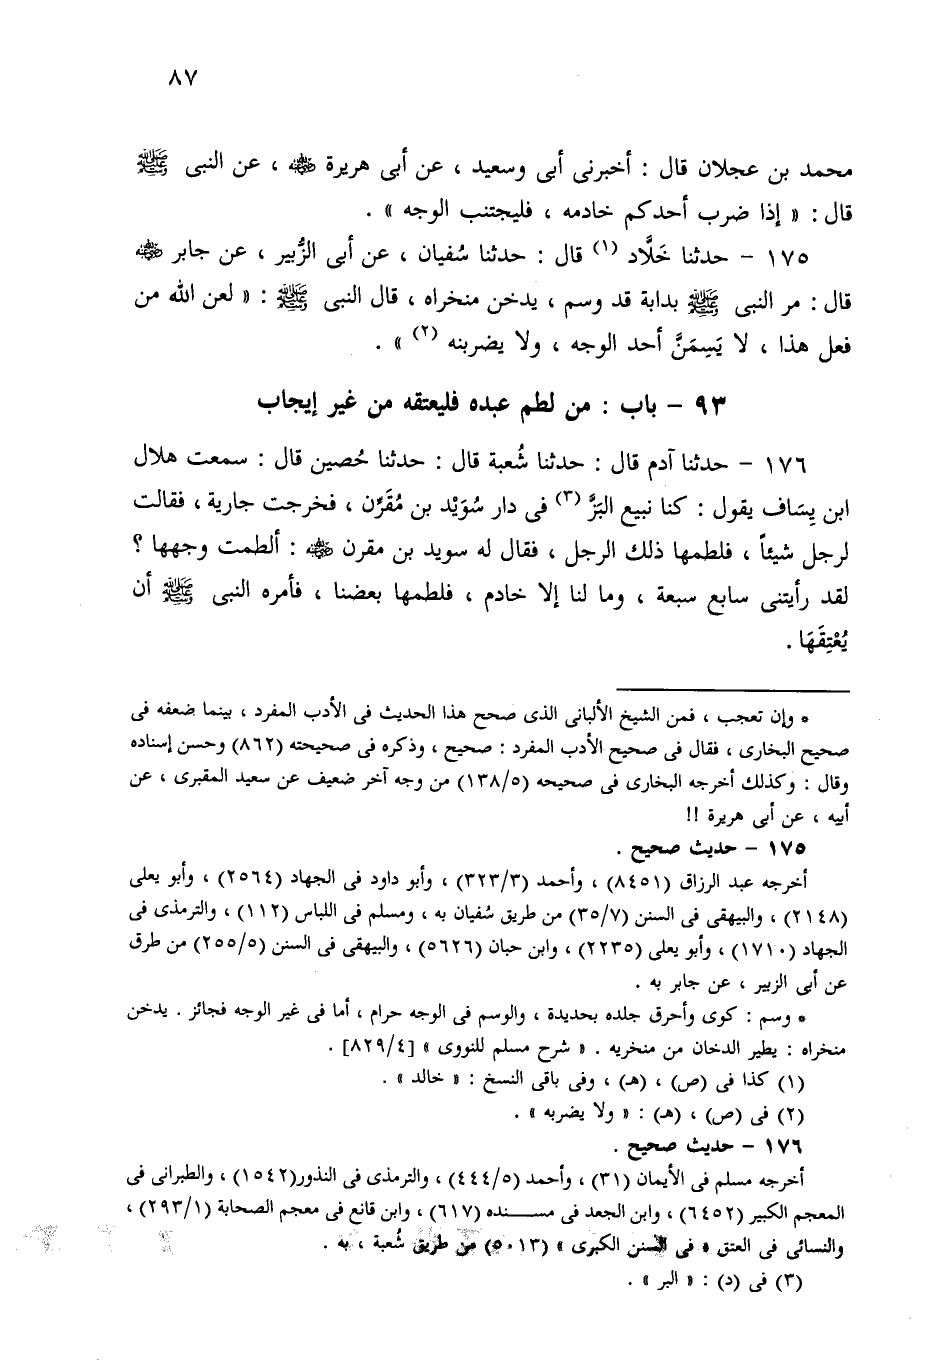 ٨٧
محمد بن عجلان قال : أخبرنى أبى وسعيد ، عن أبى هريرة ﵁ ، عن النبى ﷺ
قال : « إذا ضرب أحدكم خادمه ، فليجتنب الوجه » .
١٧٥ - حدثنا خَلَّاد (١) قال : حدثنا سُفيان ، عن أبى الزُّبير ، عن جابر ﵁
قال : مر النبى ﷺ بدابة قد وسم ، يدخن منخراه ، قال النبى ﷺ : « لعن الله من
فعل هذا ، لا يَسِمَنَّ أحد الوجه ، ولا يضربنه (٢) » .
٩٣ - باب : من لطم عبده فليعتقه من غير إيجاب
١٧٦ - حدثنا آدم قال : حدثنا شُعبة قال : حدثنا حُصين قال : سمعت هلال
ابن يِسَاف يقول : كنا نبيع البَزَّ (٣) فى دار سُوَيْد بن مُقَرِّن ، فخرجت جارية ، فقالت
لرجل شيئاً ، فلطمها ذلك الرجل ، فقال له سويد بن مقرن ﵁ : ألطمت وجهها ؟
لقد رأيتنى سابع سبعة ، وما لنا إلا خادم ، فلطمها بعضنا ، فأمره النبى ﷺ أن
يُعْتِقَهَا .
* وإن تعجب ، فمن الشيخ الألبانى الذى صحح هذا الحديث فى الأدب المفرد ، بينما ضعفه فى
صحيح البخارى ، فقال فى صحيح الأدب المفرد : صحيح ، وذكره فى صحيحته (٨٦٢) وحسن إسناده
وقال : وكذلك أخرجه البخارى فى صحيحه (١٣٨/٥) من وجه آخر ضعيف عن سعيد المقبرى ، عن
أبيه ، عن أبى هريرة !!
١٧٥ - حديث صحيح .
أخرجه عبد الرزاق (٨٤٥١) ، وأحمد (٣٢٣/٣) ، وأبو داود فى الجهاد (٢٥٦٤) ، وأبو يعلى
(٢١٤٨) ، والبيهقى فى السنن (٣٥/٧) من طريق سُفيان به ، ومسلم فى اللباس (١١٢) ، والترمذى فى
الجهاد (١٧١٠) ، وأبو يعلى (٢٢٣٥) ، وابن حبان (٥٦٢٦) ، والبيهقى فى السنن (٢٥٥/٥) من طرق
عن أبى الزبير ، عن جابر به .
* وسم : كوى وأحرق جلده بحديدة ، والوسم فى الوجه حرام ، أما فى غير الوجه فجائز . يدخن
منخراه : يطير الدخان من منخريه . « شرح مسلم للنووى » [٨٢٩/٤] .
(١) كذا فى (ص) ، (هـ) ، وفى باقى النسخ : « خالد » .
(٢) فى (ص) ، (هـ) : « ولا يضربه » .
١٧٦ - حديث صحيح .
أخرجه مسلم فى الأيمان (٣١) ، وأحمد (٤٤٤/٥) ، والترمذى فى النذور(١٥٤٢) ، والطبرانى فى
المعجم الكبير (٦٤٥٢) ، وابن الجعد فى مسنده (٦١٧) ، وابن قانع فى معجم الصحابة (٢٩٣/١) ،
والنسائى فى العتق « فى السنن الكبرى » (٥٠١٣) من طريق شُعبة ، به .
(٣) فى (د) : « البر » .